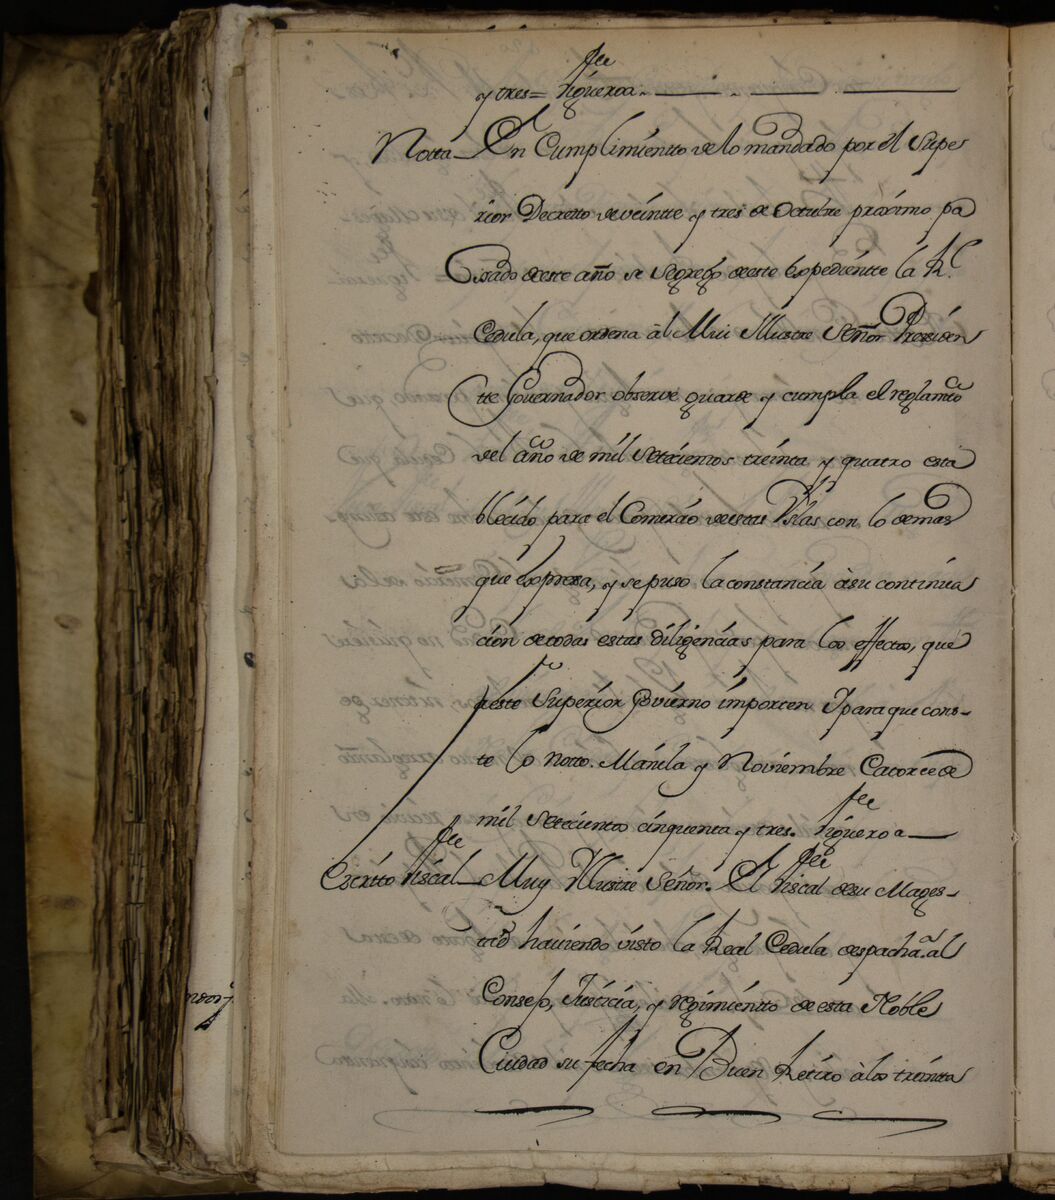 y tres= Figueroa.
Notta En Cumplimientto de lo mandado por el Supe
rior Decretto de veintte y tres de Octubre proximo pa
Ssado de este año se Segregò de este Expedientte la Rl.
Cedula, que ordena àl Mui Illustre Señor Presiden
tte Governador observe guarde y cumpla el reglamto
del año de mil Setecientos treinta y quatro esta
blecido para el Comercio de estas Yslas con lo demas
que Expresa, y se puso la constancia à su continua
cion de todas estas diligencias para los effectos, que
â este Superior Govierno importen Y para que cons-
te lo Notto. Manila y Noviembre Catorce de
mil Setecientos cinquenta y tres. Figueroa
Escritto Fiscal Muy Illustre Señor. El Fiscal de su Mages-
tad haviendo visto la Real Cedula despachâ. al
Consejo, Justicia, y regimientto de esta Noble
Ciudad su fecha en Buen Retiro à los treinta